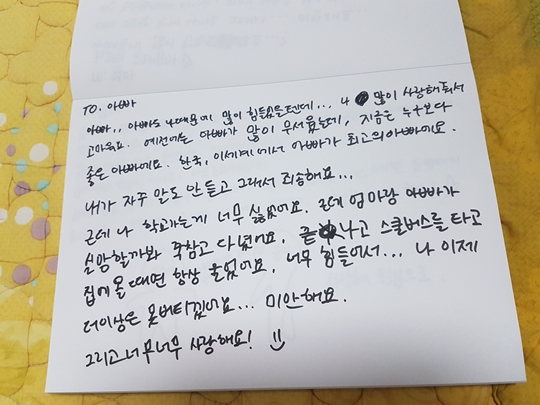 TO. 아빠
아빠.. 아빠도 나때문에 많이 힘들었을텐데... 나 많이 사랑해줘서
고마워요. 예전에는 아빠가 많이 무서웠는데, 지금은 누구보다
좋은 아빠에요. 한국, 이세계에서 아빠가 최고의아빠에요.
내가 자주 말도 안듣고 그래서 죄송해요...
근데 나 학교가는게 너무 싫었어요. 근데 엄마랑 아빠가
실망할까봐 꾹참고 다녔어요. 끝나고 스쿨버스를 타고
집에올때면 항상 울었어요. 너무 힘들어서... 나 이제
더이상은 못버티겠어요... 미안해요.
그리고 너무너무 사랑해요!